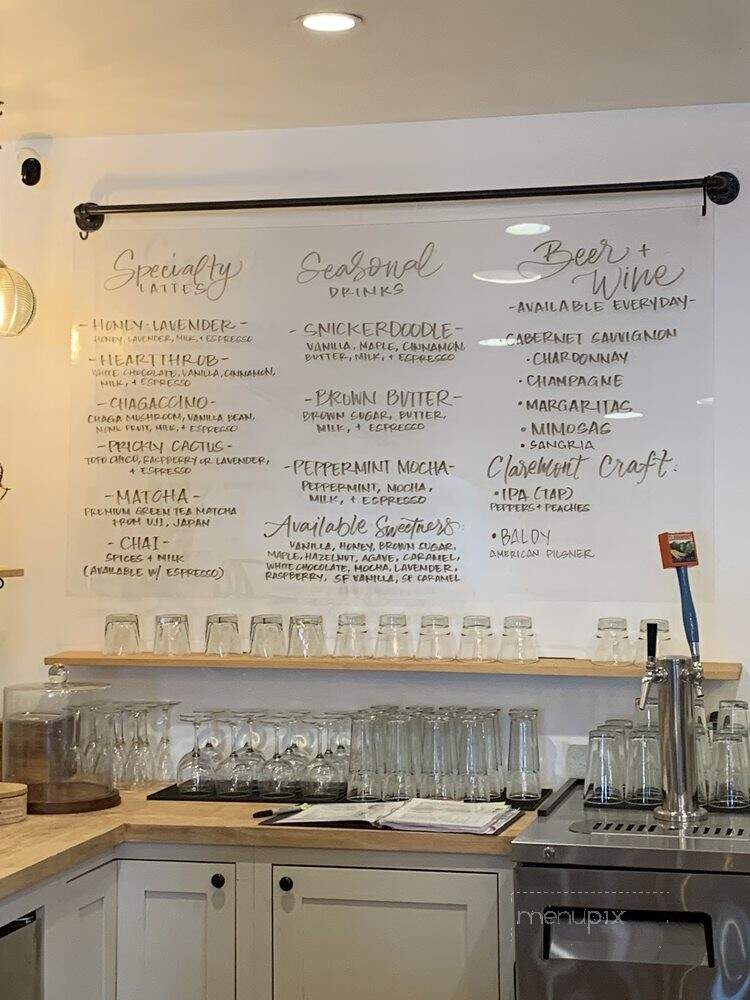 Specialty
LATTES
- HONEY-LAVENDER -
HONEY, LAVENDER, MILK, + ESPRESSO
- HEARTTHROB -
WHITE CHOCOLATE, VANILLA, CINNAMON,
MILK, + ESPRESSO
- CHAGACCINO -
CHAGA MUSHROOM, VANILLA BEAN,
MONK FRUIT, MILK, + ESPRESSO
- PRICKLY CACTUS -
TOPO CHICO, RASPBERRY OR LAVENDER,
+ ESPRESSO
- MATCHA -
PREMIUM GREEN TEA MATCHA
FROM UJI, JAPAN
- CHAI -
SPICES + MILK
(AVAILABLE W/ ESPRESSO)
Seasonal
DRINKS
- SNICKERDOODLE -
VANILLA, MAPLE, CINNAMON,
BUTTER, MILK, + ESPRESSO
- BROWN BUTTER -
BROWN SUGAR, BUTTER,
MILK, + ESPRESSO
- PEPPERMINT MOCHA -
PEPPERMINT, MOCHA,
MILK, + ESPRESSO
Available Sweetners:
VANILLA, HONEY, BROWN SUGAR,
MAPLE, HAZELNUT, AGAVE, CARAMEL,
WHITE CHOCOLATE, MOCHA, LAVENDER,
RASPBERRY, SF VANILLA, SF CARAMEL
Beer +
Wine
- AVAILABLE EVERYDAY -
• CABERNET SAUVIGNON
• CHARDONNAY
• CHAMPAGNE
• MARGARITAS
• MIMOSAS
• SANGRIA
Claremont Craft:
• IPA (TAP)
PEPPERS + PEACHES
• BALDY
AMERICAN PILSNER
menupix